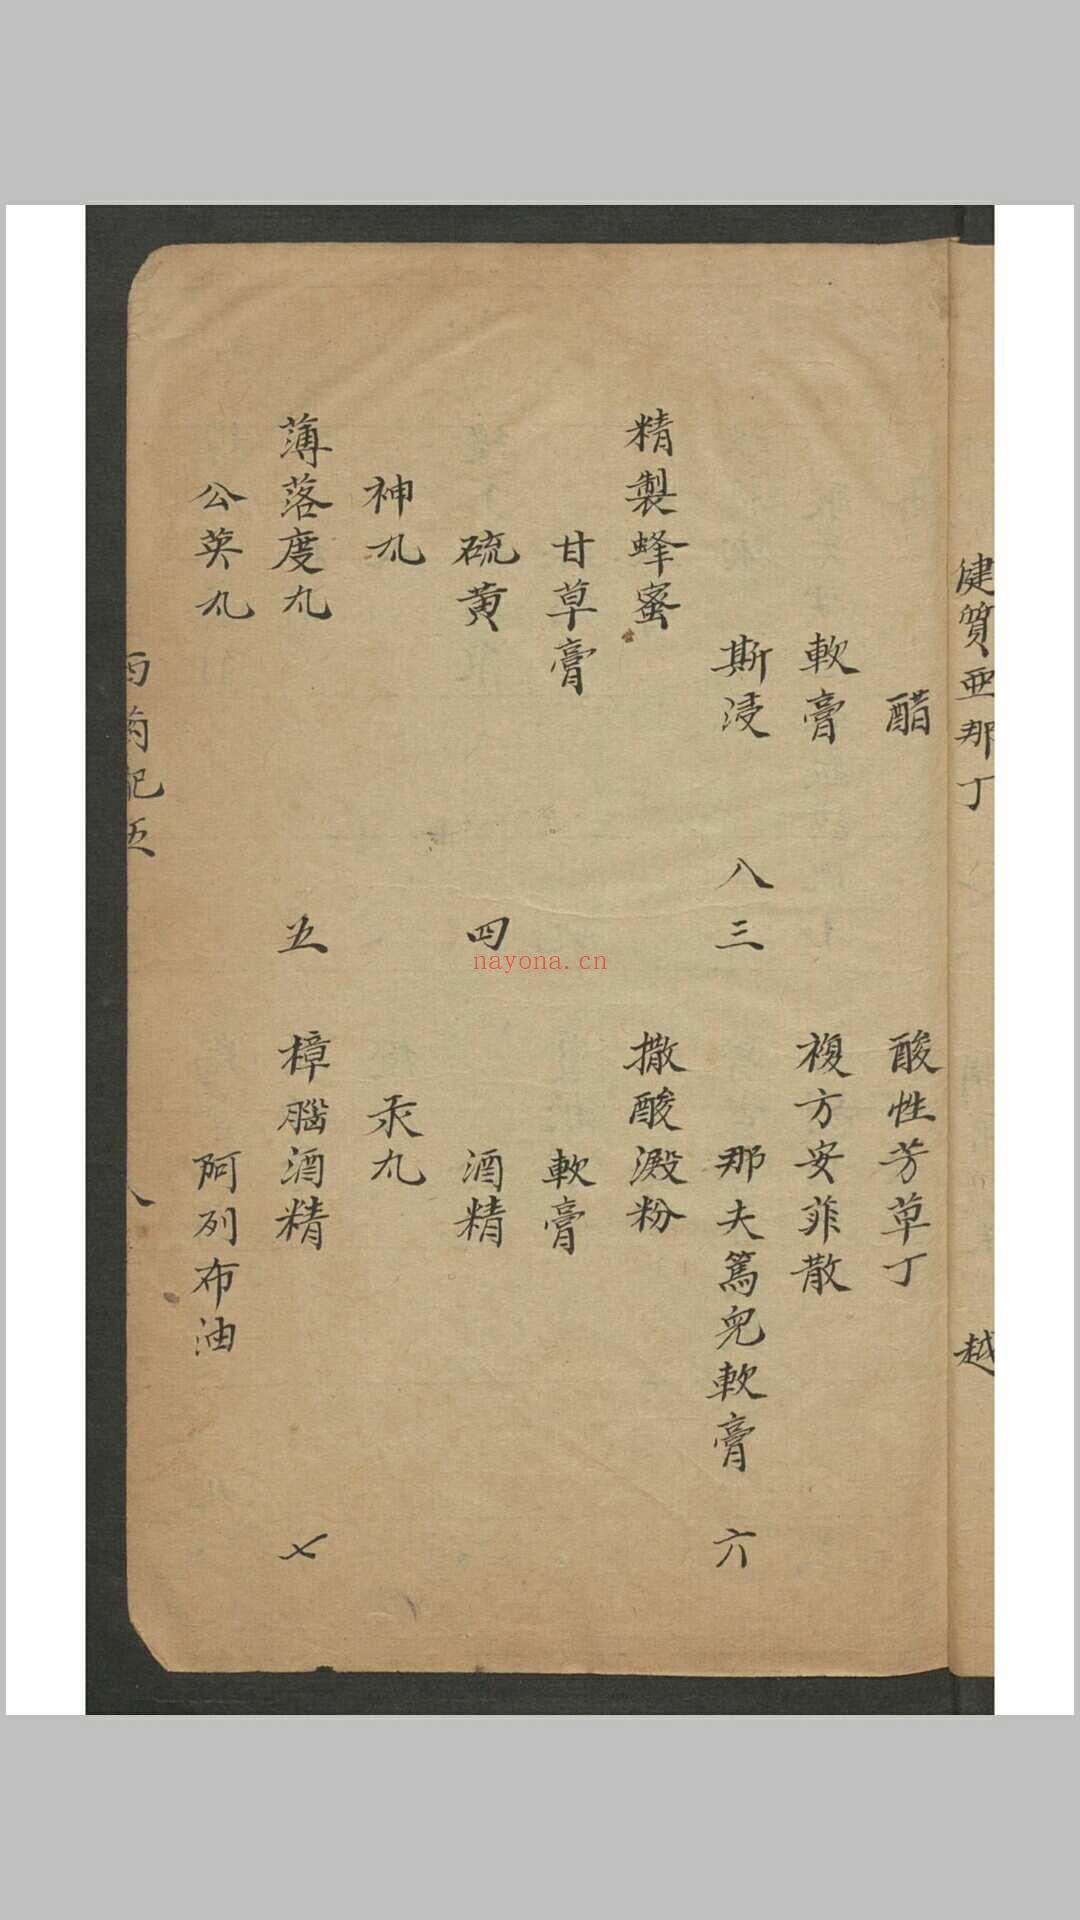 健質亞那丁 越
醋 酸性芳草丁
軟膏 複方安菲散
斯浸 八三 那夫篤兒軟膏 六
精製蜂蜜 撒酸澱粉
甘草膏 軟膏
硫黄 四 酒精
神丸 汞丸
薄落度丸 五 樟腦酒精 七
公英丸 阿列布油
nayona.cn